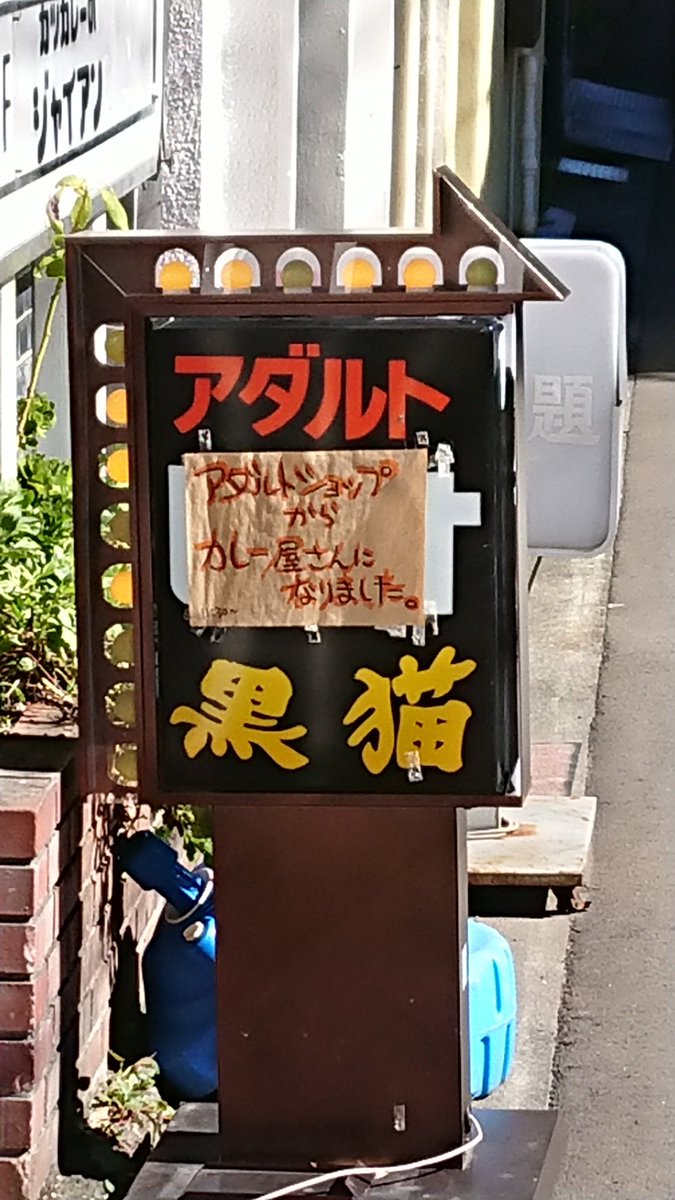 カツカレーの
ジャイアン
F
アダルト
アダルトショップ
から
カレー屋さんに
なりました。
黒猫
題